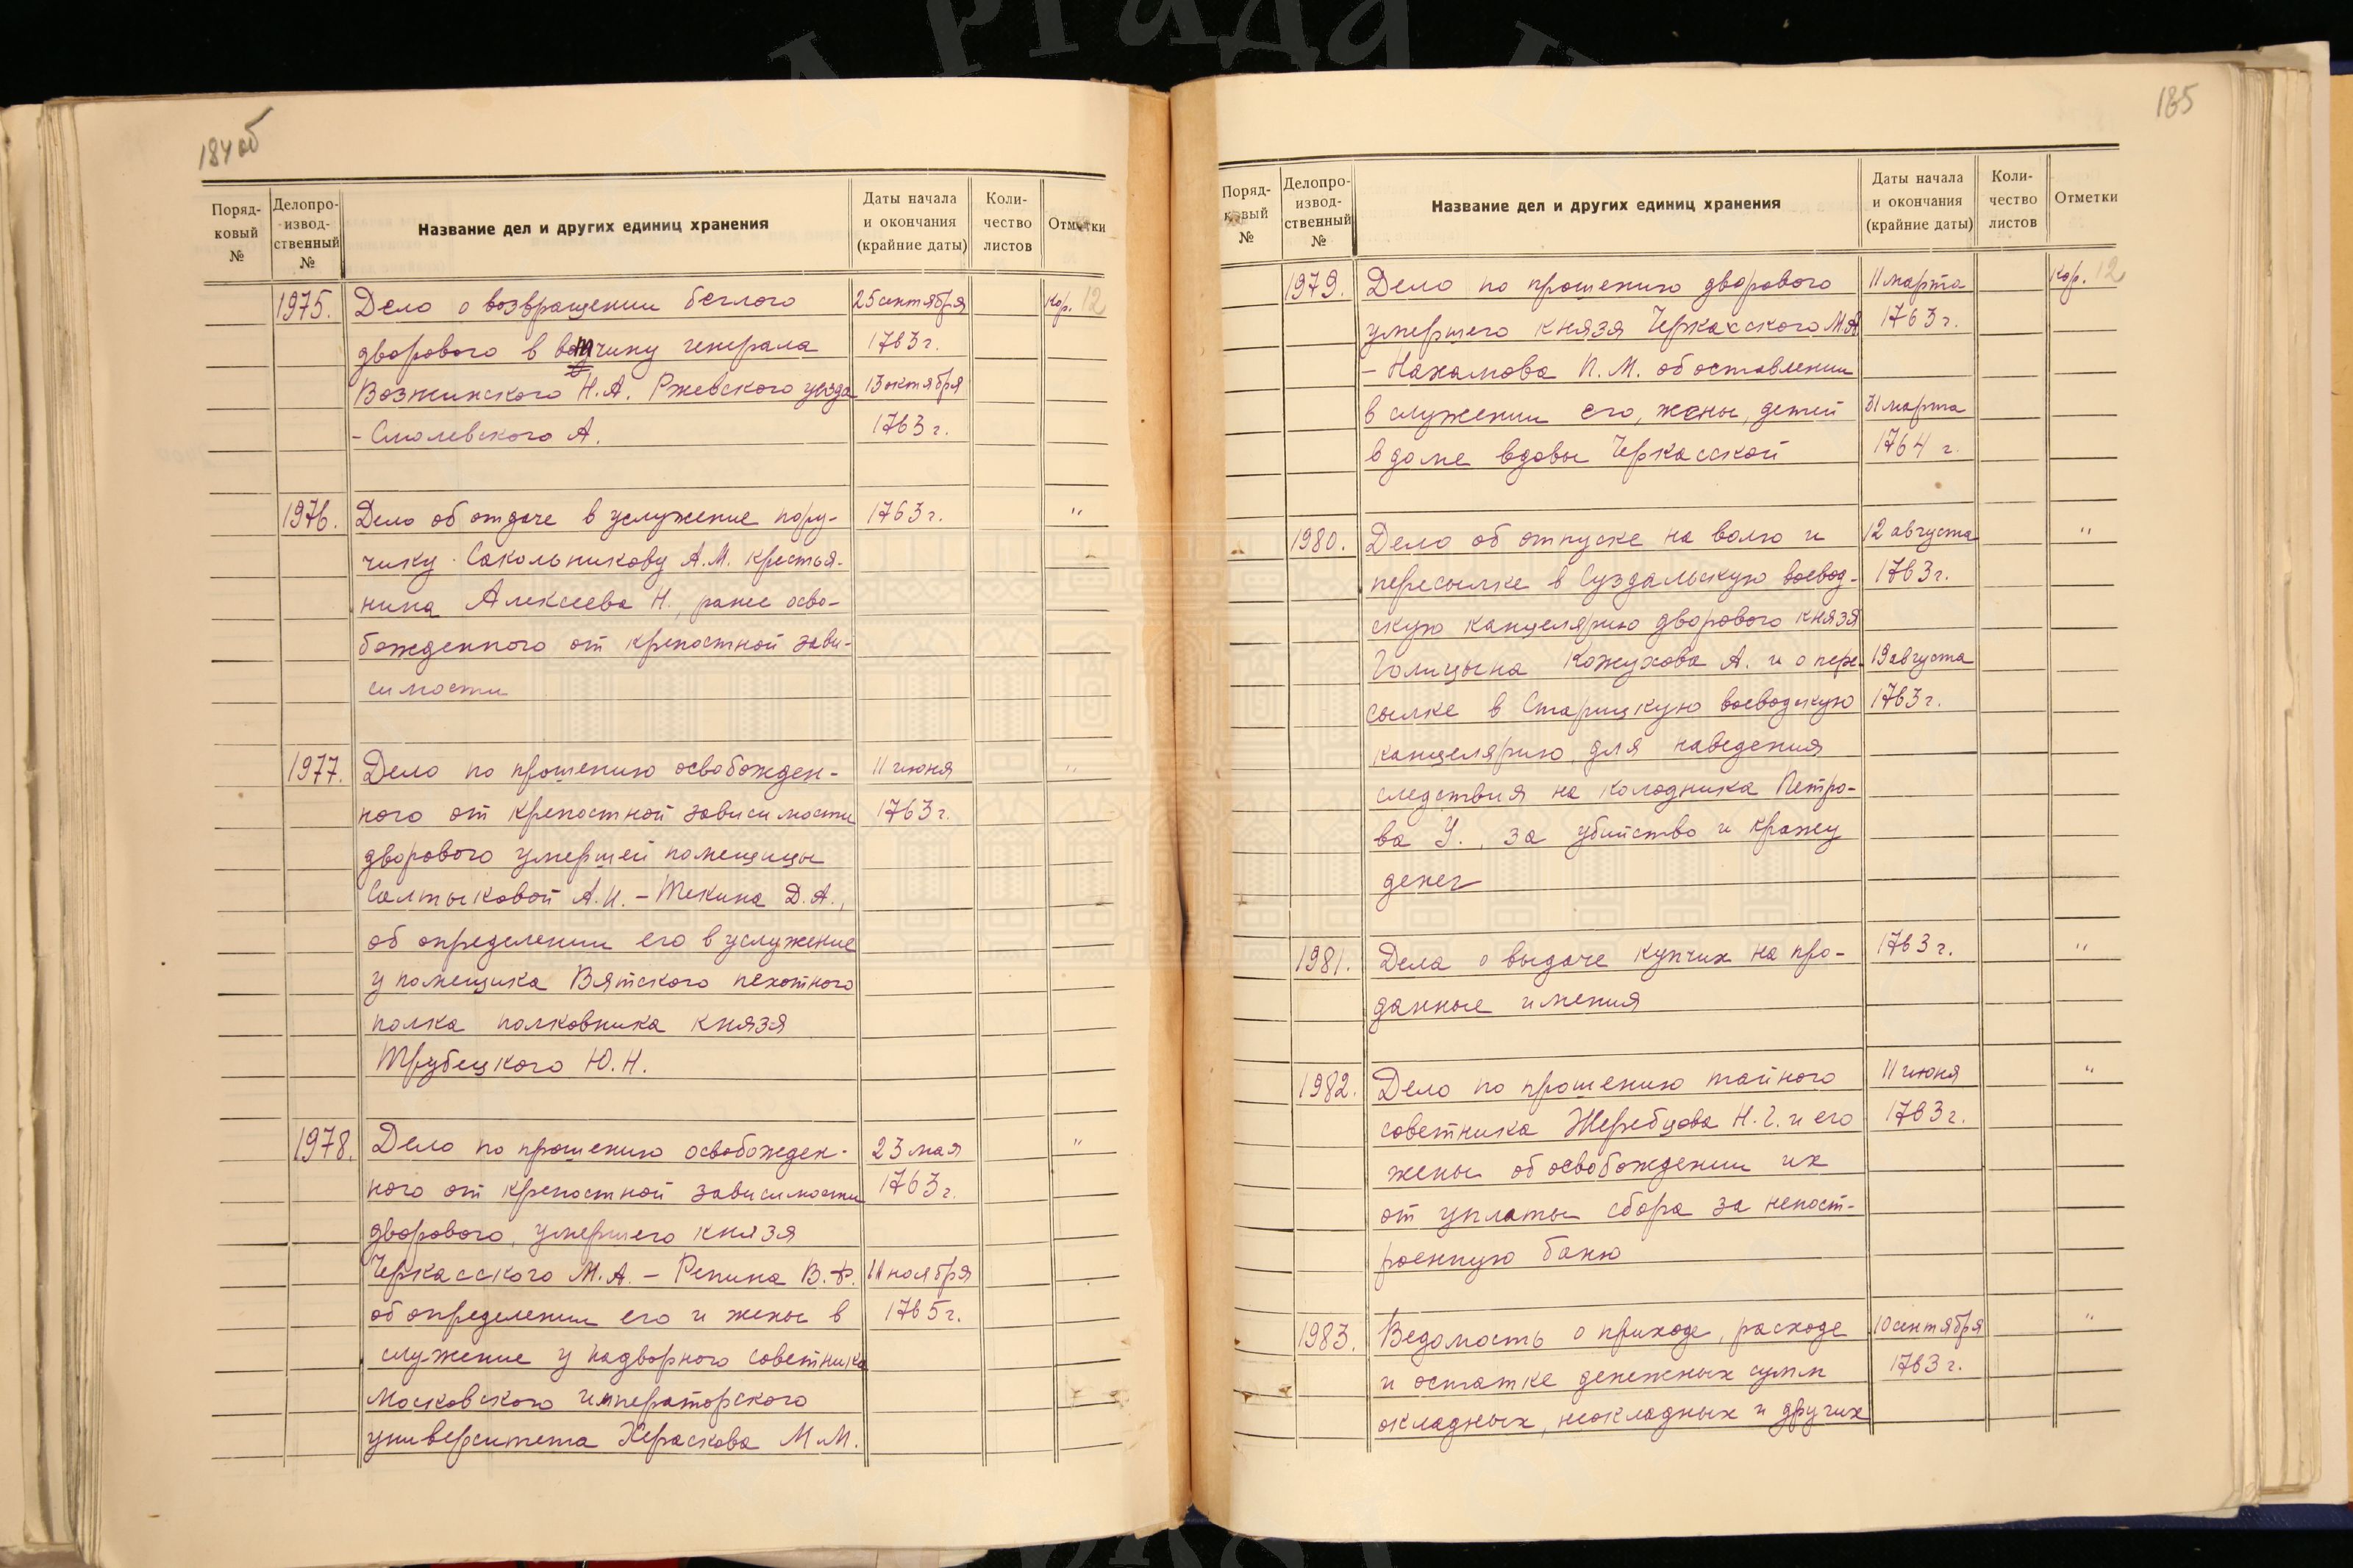 184об
Поряд-
ковый
№
Делопро-
извод-
ственный
№
Название дел и других единиц хранения
Даты начала
и окончания
(крайние даты)
Коли-
чество
листов
Отметки
1975. Дело о возвращении беглого 25 сентября кор. 12
дворового в вотчину генерала 1763 г.
Возжинского Н.А. Ржевского уезда 13 октября
- Смолевского А. 1763 г.
1976. Дело об отдаче в услужение пору- 1763 г. "
чику Сокольникову А.М. крестья-
нина Алексеева Н., ранее осво-
божденного от крепостной зави-
симости
1977. Дело по прошению освобожден- 11 июня "
ного от крепостной зависимости 1763 г.
дворового умершей помещицы
Салтыковой А.И. - Текина Д.А.,
об определении его в услужение
у помещика Вятского пехотного
полка полковника князя
Трубецкого Ю.Н.
1978. Дело по прошению освобожден- 23 мая "
ного от крепостной зависимости 1763 г.
дворового, умершего князя
Черкасского М.А. - Репина В.Ф. 11 ноября
об определении его и жены в 1765 г.
служение у надворного советника
Московского императорского
университета Хераскова М.М.
185
Поряд-
ковый
№
Делопро-
извод-
ственный
№
Название дел и других единиц хранения
Даты начала
и окончания
(крайние даты)
Коли-
чество
листов
Отметки
1979. Дело по прошению дворового 11 марта кор. 12
умершего князя Черкасского М.А 1763 г.
- Нахамова П.М. об оставлении
в служении его, жены, детей 31 марта
в доме вдовы Черкасской 1764 г.
1980. Дело об отпуске на волю и 12 августа "
пересылке в Суздальскую воевод- 1763 г.
скую канцелярию дворового князя
Голицына Кожухова А. и о пере- 19 августа
сылке в Старицкую воеводскую 1763 г.
канцелярию для наведения
следствия на колодника Петро-
ва У., за убийство и кражу
денег
1981. Дела о выдаче купчих на про- 1763 г. "
данные имения
1982. Дело по прошению тайного 11 июня "
советника Жеребцова Н.Г. и его 1763 г.
жены об освобождении их
от уплаты сбора за непост-
роенную баню
1983. Ведомость о приходе, расходе 10 сентября "
и остатке денежных сумм 1763 г.
окладных, неокладных и других